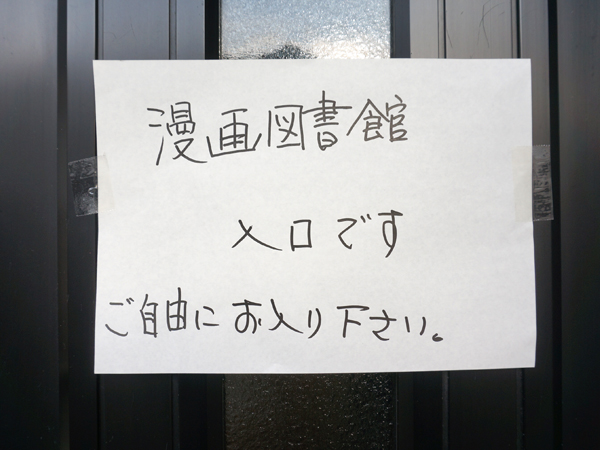 漫画図書館
入口です
ご自由にお入り下さい。